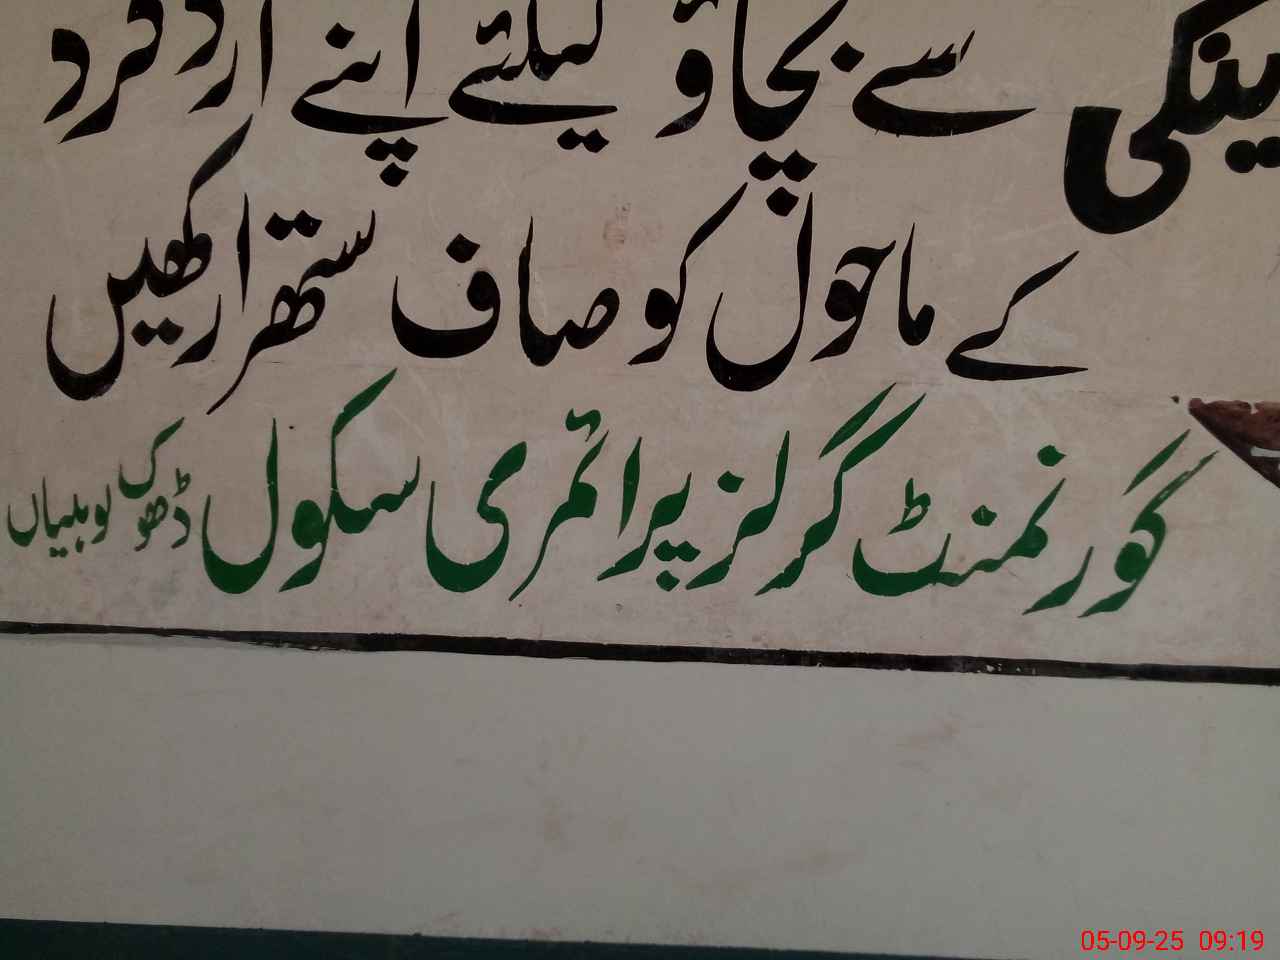 ینکی سے بچاؤ کیلئے اپنے اردگرد
کے ماحول کو صاف ستھرا رکھیں
گورنمنٹ گرلز پرائمری سکول ڈھوک لوہلیاں
05-09-25 09:19